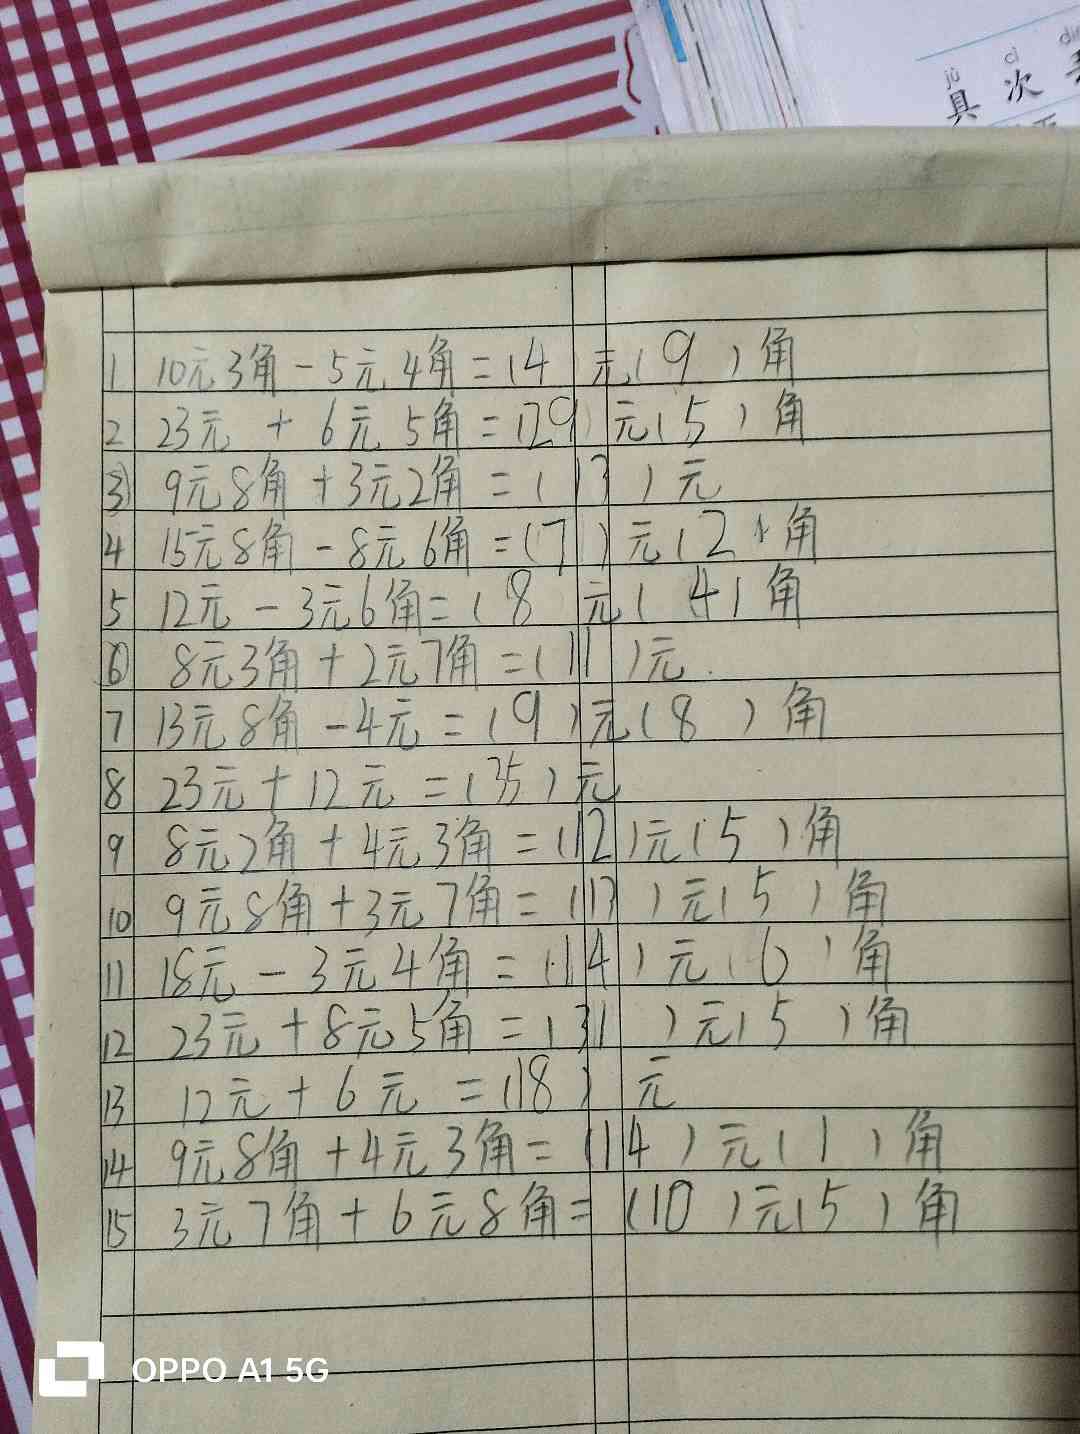 jù cì diū
具 次 丢
1 10元3角-5元4角=(4)元(9)角
2 23元+6元5角=(29)元(5)角
③ 9元8角+3元2角=(13)元
4 15元8角-8元6角=(7)元(2)角
5 12元-3元6角=(8)元(4)角
⑥ 8元3角+2元7角=(11)元.
7 13元8角-4元=(9)元(8)角
8 23元+12元=(35)元
9 8元2角+4元3角=(12)元(5)角
10 9元8角+3元7角=(13)元(5)角
11 18元-3元4角=(14)元(6)角
12 23元+8元5角=(31)元(5)角
13 12元+6元=(18)元
14 9元8角+4元3角=(14)元(1)角
15 3元7角+6元8角=(10)元(5)角
OPPO A1 5G